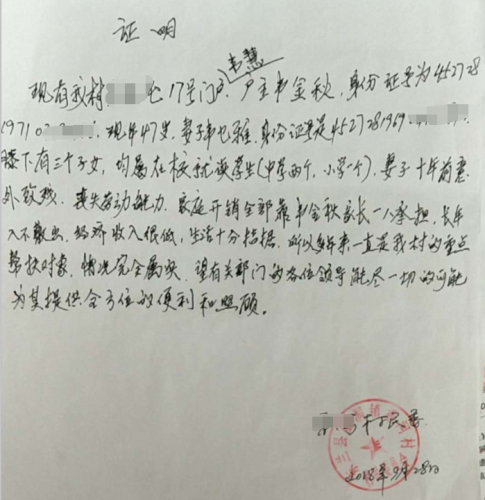 证明
韦慧
现有我村 屯17号门户,户主韦金秋,身份证号为452728
197102 ,现年47岁,妻子韦也难,身份证号是4527281969
膝下有三个子女,均属在校就读学生(中学两个,小学一个),妻子十年前意
外致残,丧失劳动能力,家庭开销全部靠韦金秋家长一人承担,长年
入不敷出,经济收入很低,生活十分拮据,所以多年来一直是我村的重点
帮扶对象,情况完全属实,望有关部门的各位领导能尽一切的可能
为其提供全方位的便利和照顾。
村民委
2018年9月28日